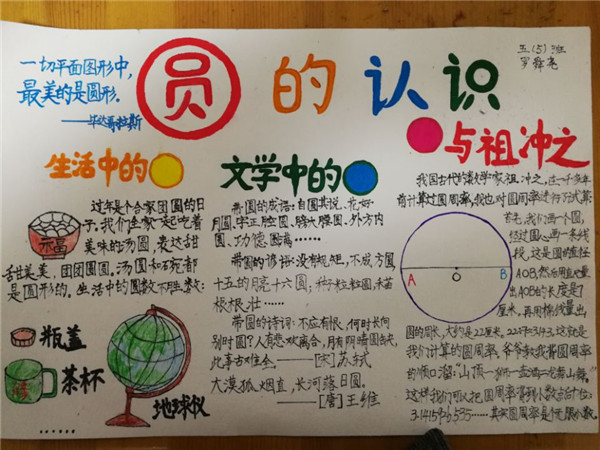 一切平面图形中,
最美的是圆形.
——毕达哥拉斯
圆的认识
五(5)班
罗舜亮
生活中的
过年是个合家团圆的日
子,我们全家一起吃着
美味的汤圆 表达甜
甜美美,团团圆圆,汤圆和碗都
是圆形的,生活中的圆数不胜数:
福
瓶盖
茶杯
地球仪
……
文学中的
带圆的成语:自圆其说、花好
月圆、字正腔圆、膀大腰圆、外方内
圆、功德圆满……
带圆的谚语:没有规矩,不成方圆
十五的月亮十六圆;种子粒粒圆,禾苗
根根壮……
带圆的诗词:不应有恨,何时长向
别时圆?人有悲欢离合,月有阴晴圆缺,
此事古难全。——[宋]苏轼
大漠孤烟直,长河落日圆。
——[唐]王维
与祖冲之
我国古代的数学家祖冲之,在一千多年
前计算过圆周率,我也对圆周率进行了试算:
首先,我们画一个圆,
经过圆心画一条线
段,这是圆的直径
AOB,然后用直尺量
出AOB的长度是7
厘米,再用棉线量出,
A O B
圆的周长,大约是22厘米。22÷7≈3.143,这就是
我们计算的圆周率。爷爷教我背圆周率
的顺口溜:"山顶一
这样我们可以把圆周率背到小数点后
3.141596535……其实圆周率是个无限小数。